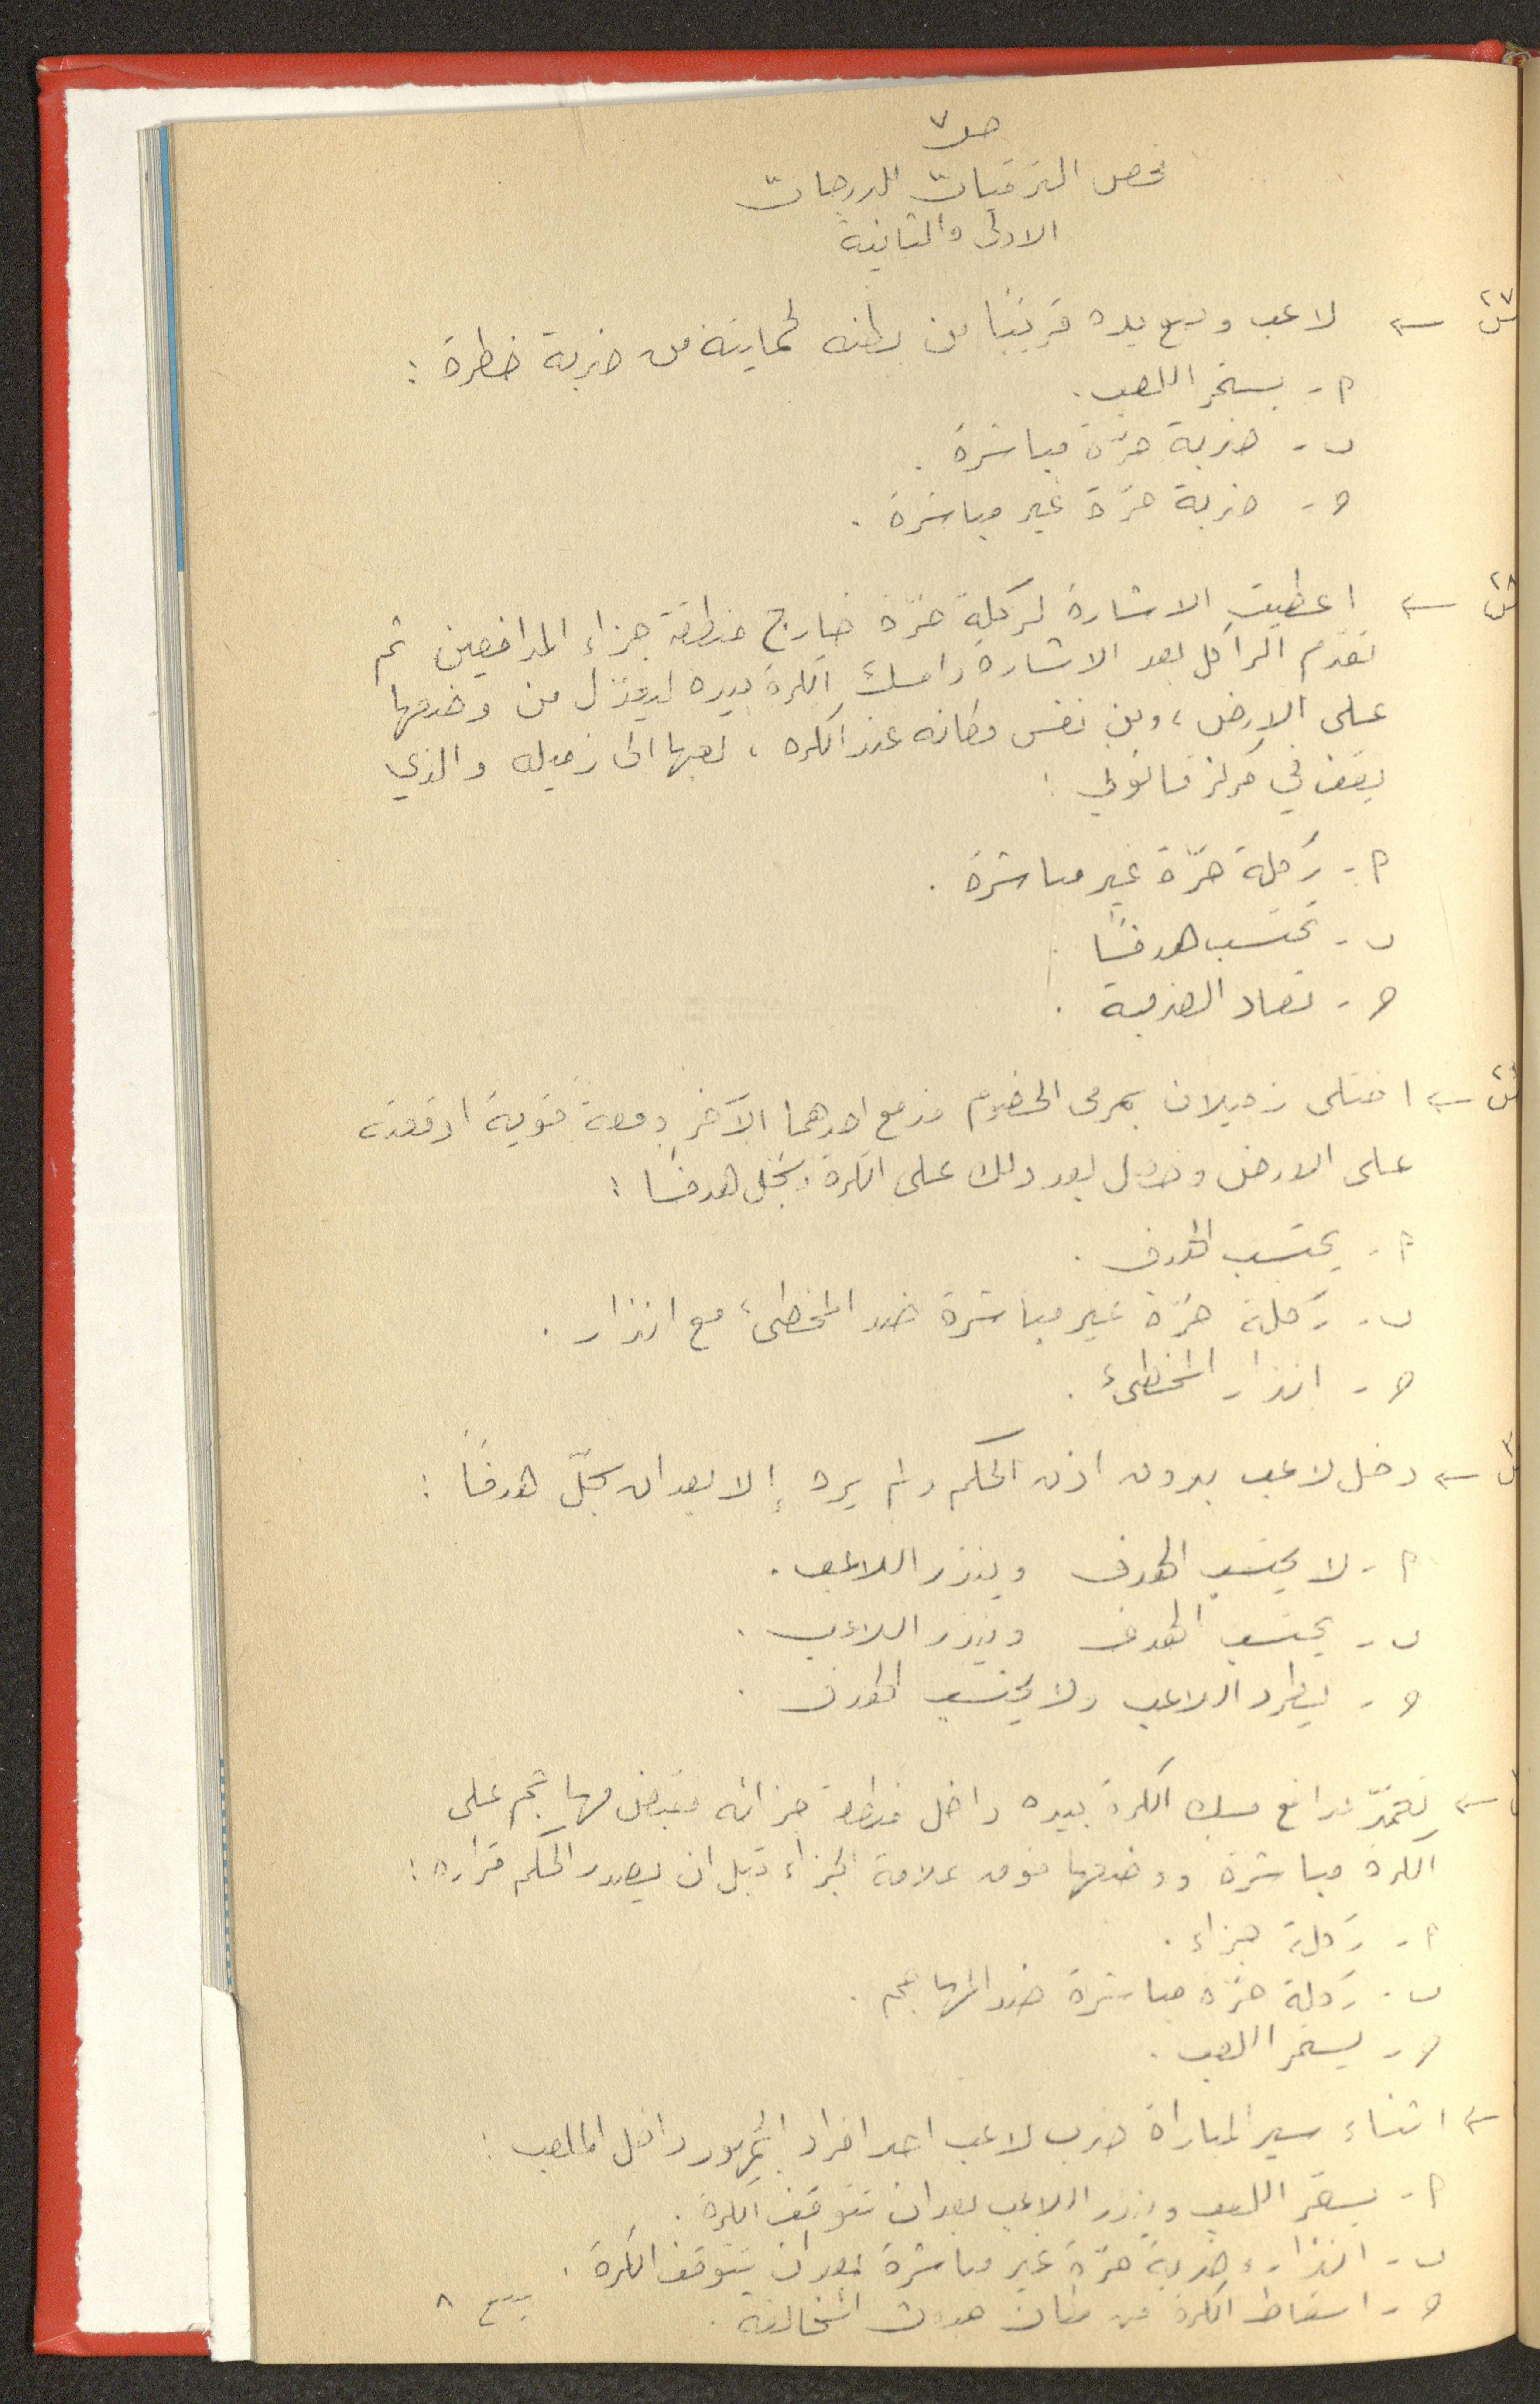 ص ٧
فحص الترقيات للدرجات
الاولى والثانية
س٢٧ ← لاعب وضع يده قريبًا من بطنه لحمايته من ضربة خطرة :
٢- يستمر اللعب .
ب- ضربة حرّة مباشرة .
ج- ضربة حرّة غير مباشرة .
س٢٨ ← اعطيت الاشارة لركلة حرّة خارج منطقة جزاء المدافعين ثم
تقدّم الراكل بعد الاشارة وامسك الكرة بيده ليعدّل من وضعها
على الارض ، ومن نفس مكانه عند الكره ، لعبها الى زميله والذي
يقف في مركز قانوني :
أ- ركلة حرّة غير مباشرة .
ب- تحتسب هدفًا .
ج- تعاد الضربة .
س ← اختلى زميلان بمرمى الخصوم فدفع احدهما الآخر دفعةً قوية اوقعته
على الارض وحصل بعد ذلك على الكرة وسجّل هدفًا :
أ- يحتسب الهدف .
ب- ركلة حرّة غير مباشرة ضد المخطئ مع انذار .
ج- انذار المخطئ .
س ← دخل لاعب بدون اذن الحكم ولم يره إلا بعد ان سجّل هدفاً :
أ- لا يحتسب الهدف وينذر اللاعب .
ب- يحتسب الهدف وينذر اللاعب .
ج- يطرد اللاعب ولا يحتسب الهدف .
← تعمّد مدافع مسك الكرة بيده داخل منطقة جزائه فقبض مهاجم على
الكرة مباشرة ووضعها فوق علامة الجزاء قبل ان يصدر الحكم قراره :
أ- ركلة جزاء .
ب- ركلة حرّة مباشرة ضد المهاجم .
ج- يستمر اللعب .
← اثناء سير المباراة ضرب لاعب احد افراد الجمهور داخل الملعب :
أ- يستمر اللعب وينذر اللاعب بعد ان تتوقف الكرة .
ب- انذار وضربة حرّة غير مباشرة بعد ان تتوقف الكرة .
ج- اسقاط الكرة من مكان حدوث المخالفة . يتبع ٨